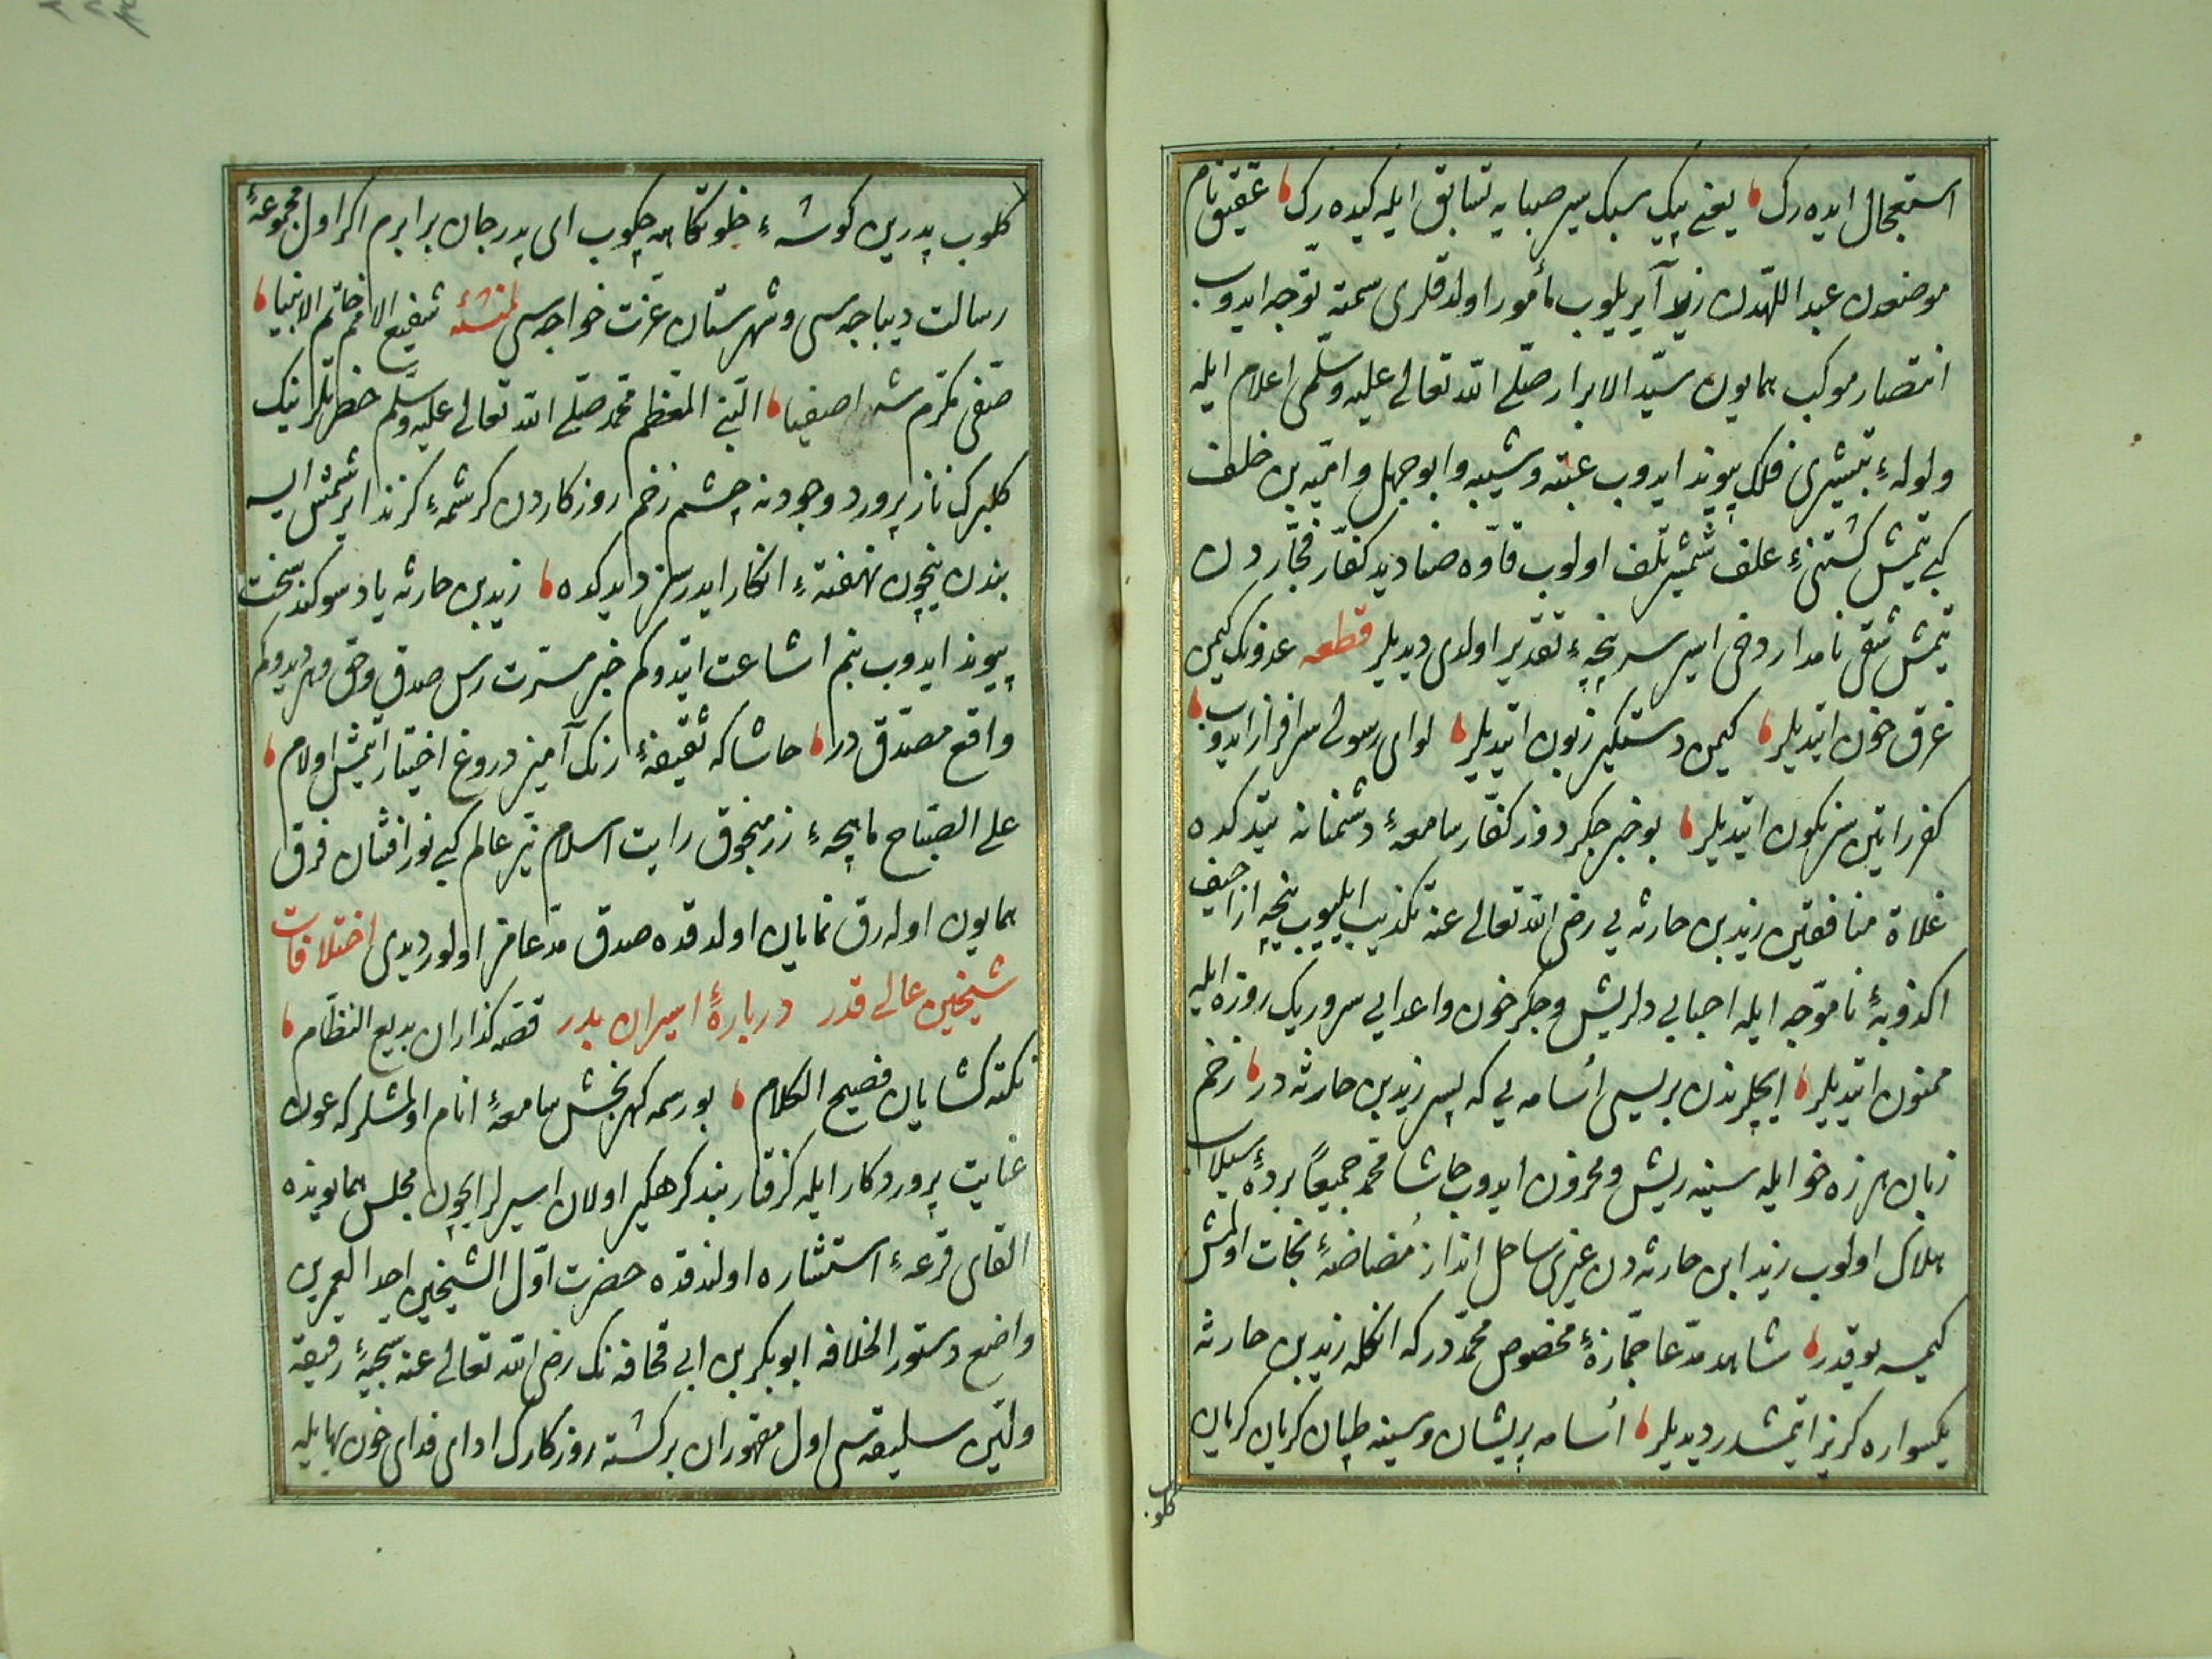 استعجال ایده‌رك یعنی پیك سبك سیر صبایه تسابق ایله کیده‌رك عقیق نام
موضعدن عبد اللهدن زید آیریلوب مأمور اولدقلری سمته توجه ایدوب
انتصار موکب همایون سیّد الابرار صلّی الله تعالی علیه وسلّمی اعلام ایله
ولولهٔ تبشیری فلك پیوند ایدوب عتبه وشیبه وابوجهل وامیّه بن خلف
کبی یتمش کشتنیٔ علف شمشیر تلف اولوب قاوه صنادید کفّار فجّاردن
یتمش شقی نامدار دخی اسیر سرپنجهٔ تقدیر اولدی دیدیلر قطعه عدونك کیمن
غرق خون ایتدیلر کیمن دستکیر زبون ایتدیلر لوای رسولی سرافراز ایدوب
کفر رایتین سرنکون ایتدیلر بو خبر جکر دوز کفّار سامعهٔ دشمنانه یتدکده
غلاة منافقین زید بن حارثه یی رضی الله تعالی عنه تکذیب ایلیوب نیجه اراجیف
اکذوبهٔ ناموجه ایله احبایی دلریش وجکر خون واعدایی سرور یك روزه ایله
ممنون ایتدیلر ایچلرندن بریسی اُسامه یی که پسر زید بن حارثه در زخم
زبان هرزه خوا ایله سینه ریش ومحزون ایدوب حاشا محمد جمیعاً بردهٔ سیلاب
هلاك اولوب زید ابن حارثه دن غیری ساحل انداز مُضاضهٔ نجات اولمش
کیمسه یوقدر شاهد مدّعا جمّازهٔ مخصوص محمّددر که انکله زید بن حارثه
یکسواره کریز ایتمشدر دیدیلر اُسامه پریشان وسینه طپان کریان کریان
کلوب
کلوب پدرین کوشهٔ خلوتکاهه چکوب ای پدر جان برابرم اکر اول مجموعهٔ
رسالت دیباجه سی وشهرستان عزت خواجه سی لمنشئه شفیع الامم خاتم الانبیا
صفی مکرم شه اصفیا النبی المعظم محمد صلّی الله تعالی علیه وسلّم حضرتلرینك
کلبرك نازپرورد وجودنه چشم زخم روزکاردن کرشمهٔ کزند ایرشمش ایسه
بندن نیچون نهفتهٔ انکار ایدرسز دیدکده زید بن حارثه یاد سوکند سخت
پیوند ایدوب بنم اشاعت ایتدوکم خبر مسرّت رس صدق وحق ودیدوکم
واقع مصدّق در حاشا که رنك آمیز دروغ اختیار ایتمش اولام
علی الصباح ماهچهٔ زر منجوق رایت اسلام نیّر عالم کبی نور افشان فرق
همایون اوله‌رق نمایان اولدقده صدق مدّعا اولور دیدی اختلافات
شیخین عالی قدر دربارهٔ اسیران بدر قصه کذاران بدیع النظام
نکته کشایان فصیح الکلام بو رسمه کهربخش سامعهٔ انام اولمشلر که عون
عنایت پروردکار ایله کرفتار بند کرهکیر اولان اسیرلر ایچون مجلس همایونده
القای قرعهٔ استشاره اولندقده حضرت اوّل الشیخین احد العمرین
واضع دستور الخلافه ابوبکر بن ابی قحافه نك رضی الله تعالی عنه سجیهٔ رقیقه
ولیّن سلیقه سی اول مقهوران برکشته روزکارك ادای فدای خون بها ایله